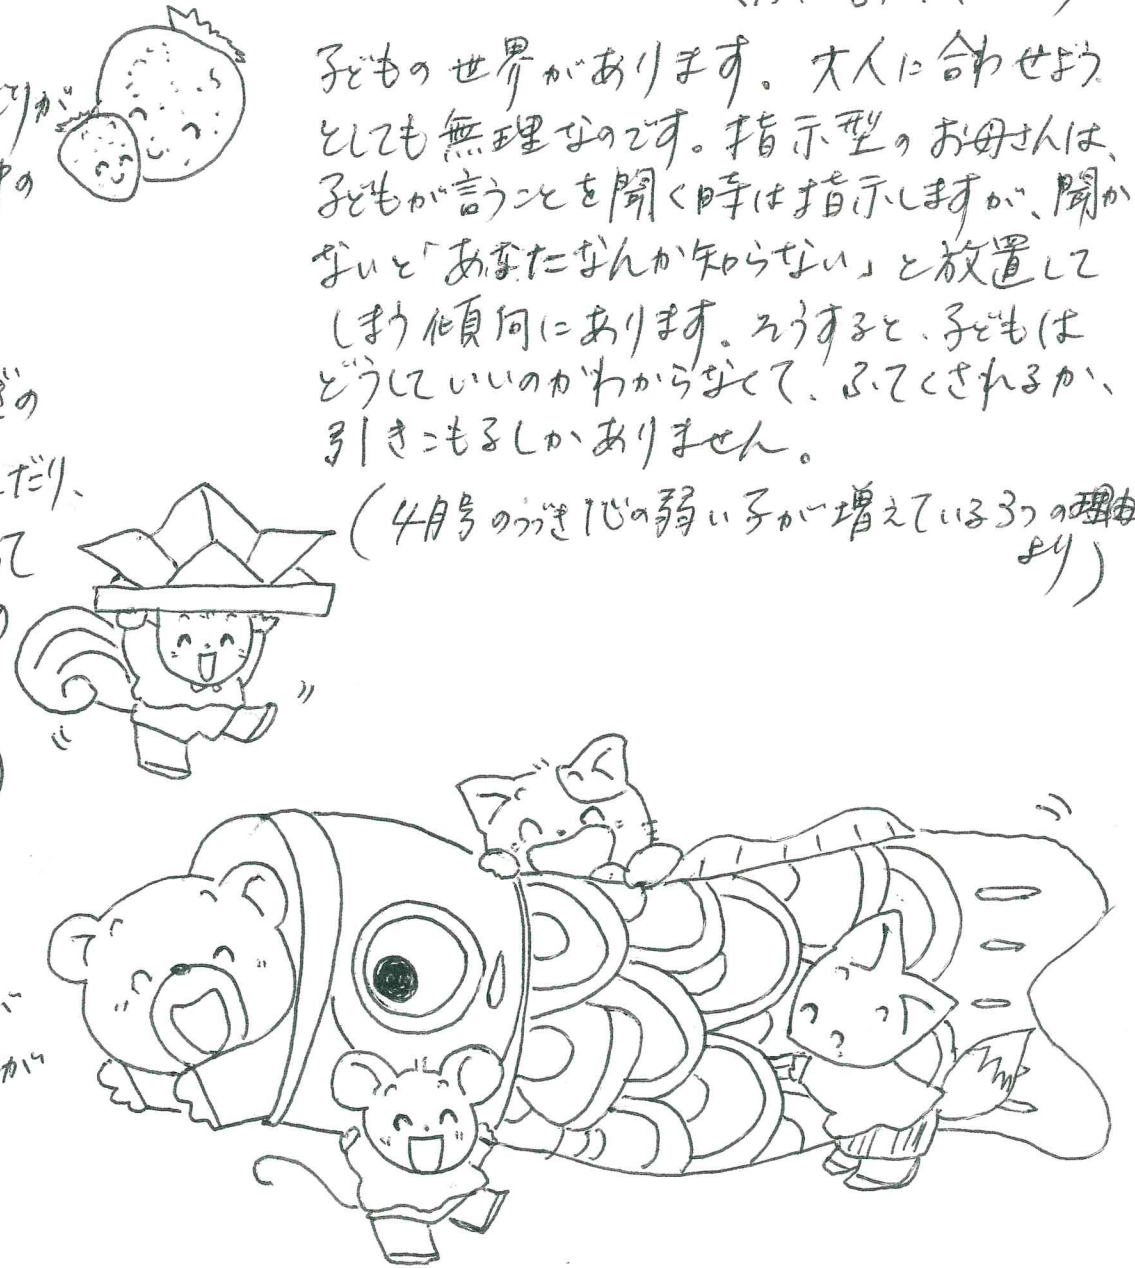 子どもの世界があります。大人に合わせよう
としても無理なのです。指示型のお母さんは、
子どもが言うことを聞く時は指示しますが、聞か
ないと「あなたなんか知らない」と放置して
しまう傾向にあります。そうすると、子どもは
どうしていいのかわからなくて、ふてくされるか、
引きこもるしかありません。
(4月号のつづき 心の弱い子が増えている3つの理由
より)
とりが
の
ぎの
だり、
て
が